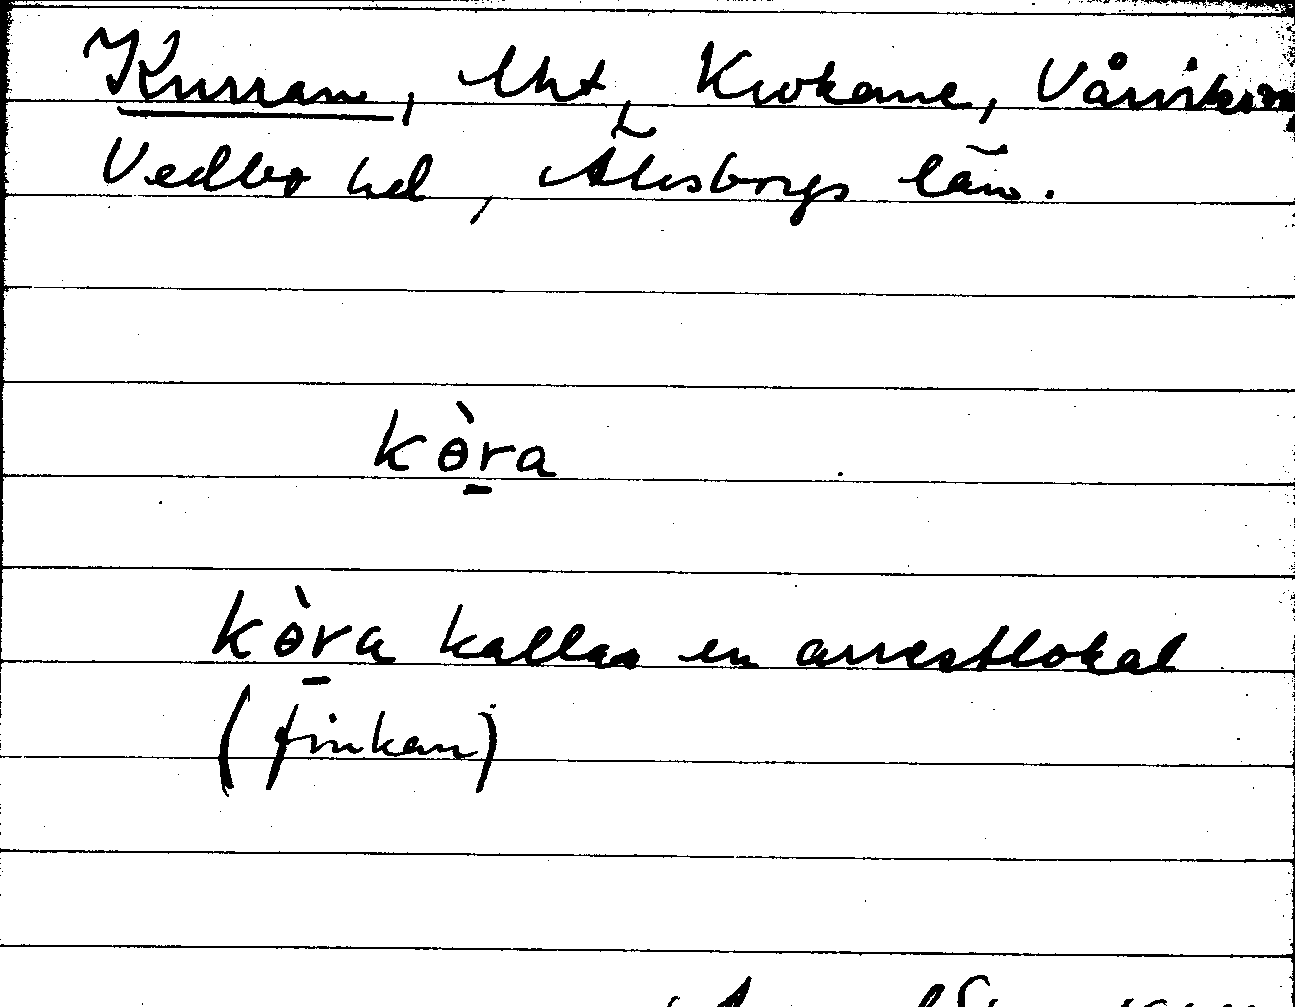 Kurran, lht, Krokane, Vårviks sn,
Vedbo hd, Älvsborgs län.
kɵ̀r̠a
kɵ̀r̠a kallas en arrestlokal
(finkan)